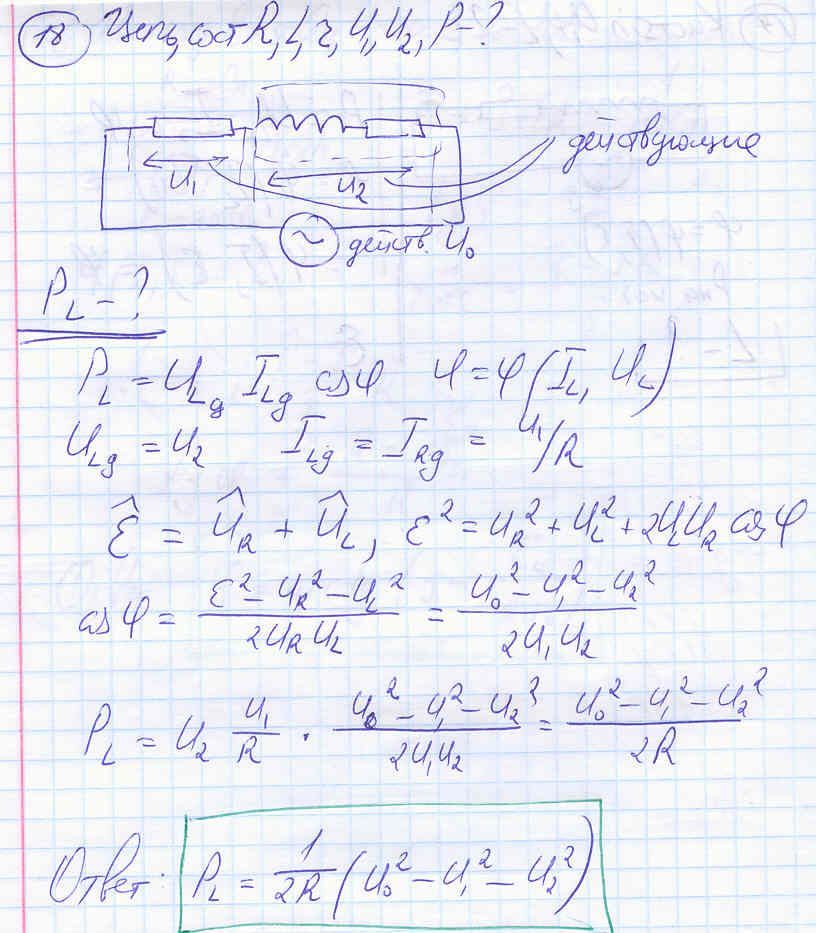 18 Цепь, сост R, L, r, U₁, U₂, P-?
U₁
U₂
действующие
действ. U₀
P_L - ?
P_L = U_Lg I_Lg cosφ φ = φ(I_L, U_L)
U_Lg = U₂ I_Lg = I_Rg = U₁/R
ε̂ = Û_R + Û_L, ε² = U_R² + U_L² + 2U_L U_R cosφ
cosφ = (ε² - U_R² - U_L²)/(2U_R U_L) = (U₀² - U₁² - U₂²)/(2U₁U₂)
P_L = U₂ U₁/R · (U₀² - U₁² - U₂²)/(2U₁U₂) = (U₀² - U₁² - U₂²)/(2R)
Ответ: P_L = 1/(2R) (U₀² - U₁² - U₂²)